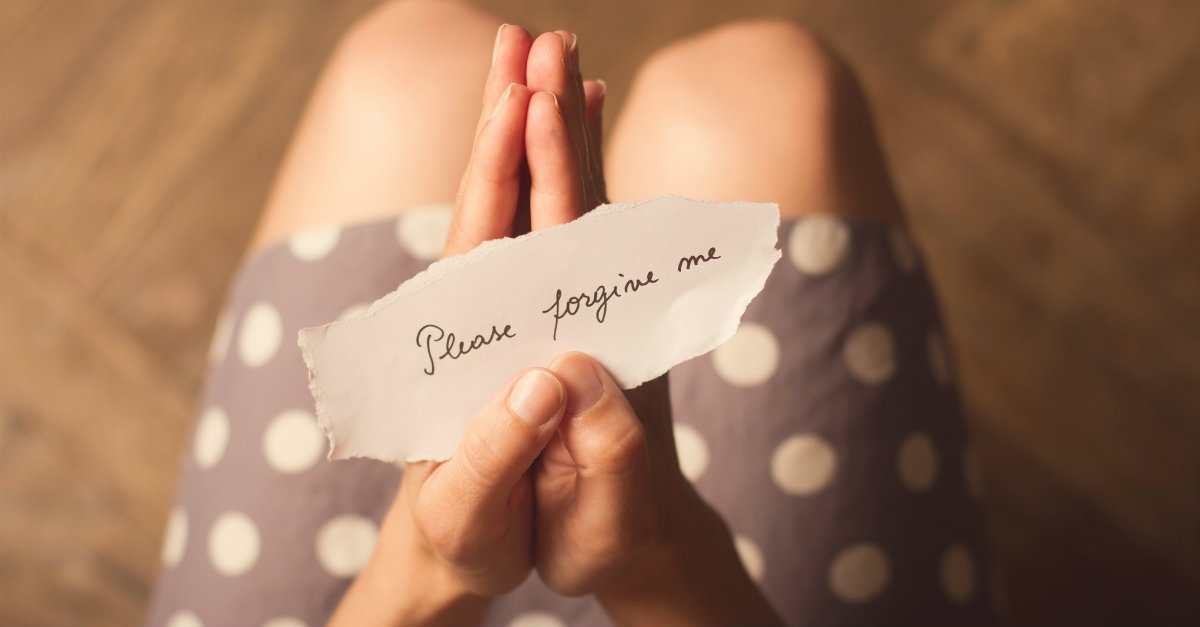 Please forgive me